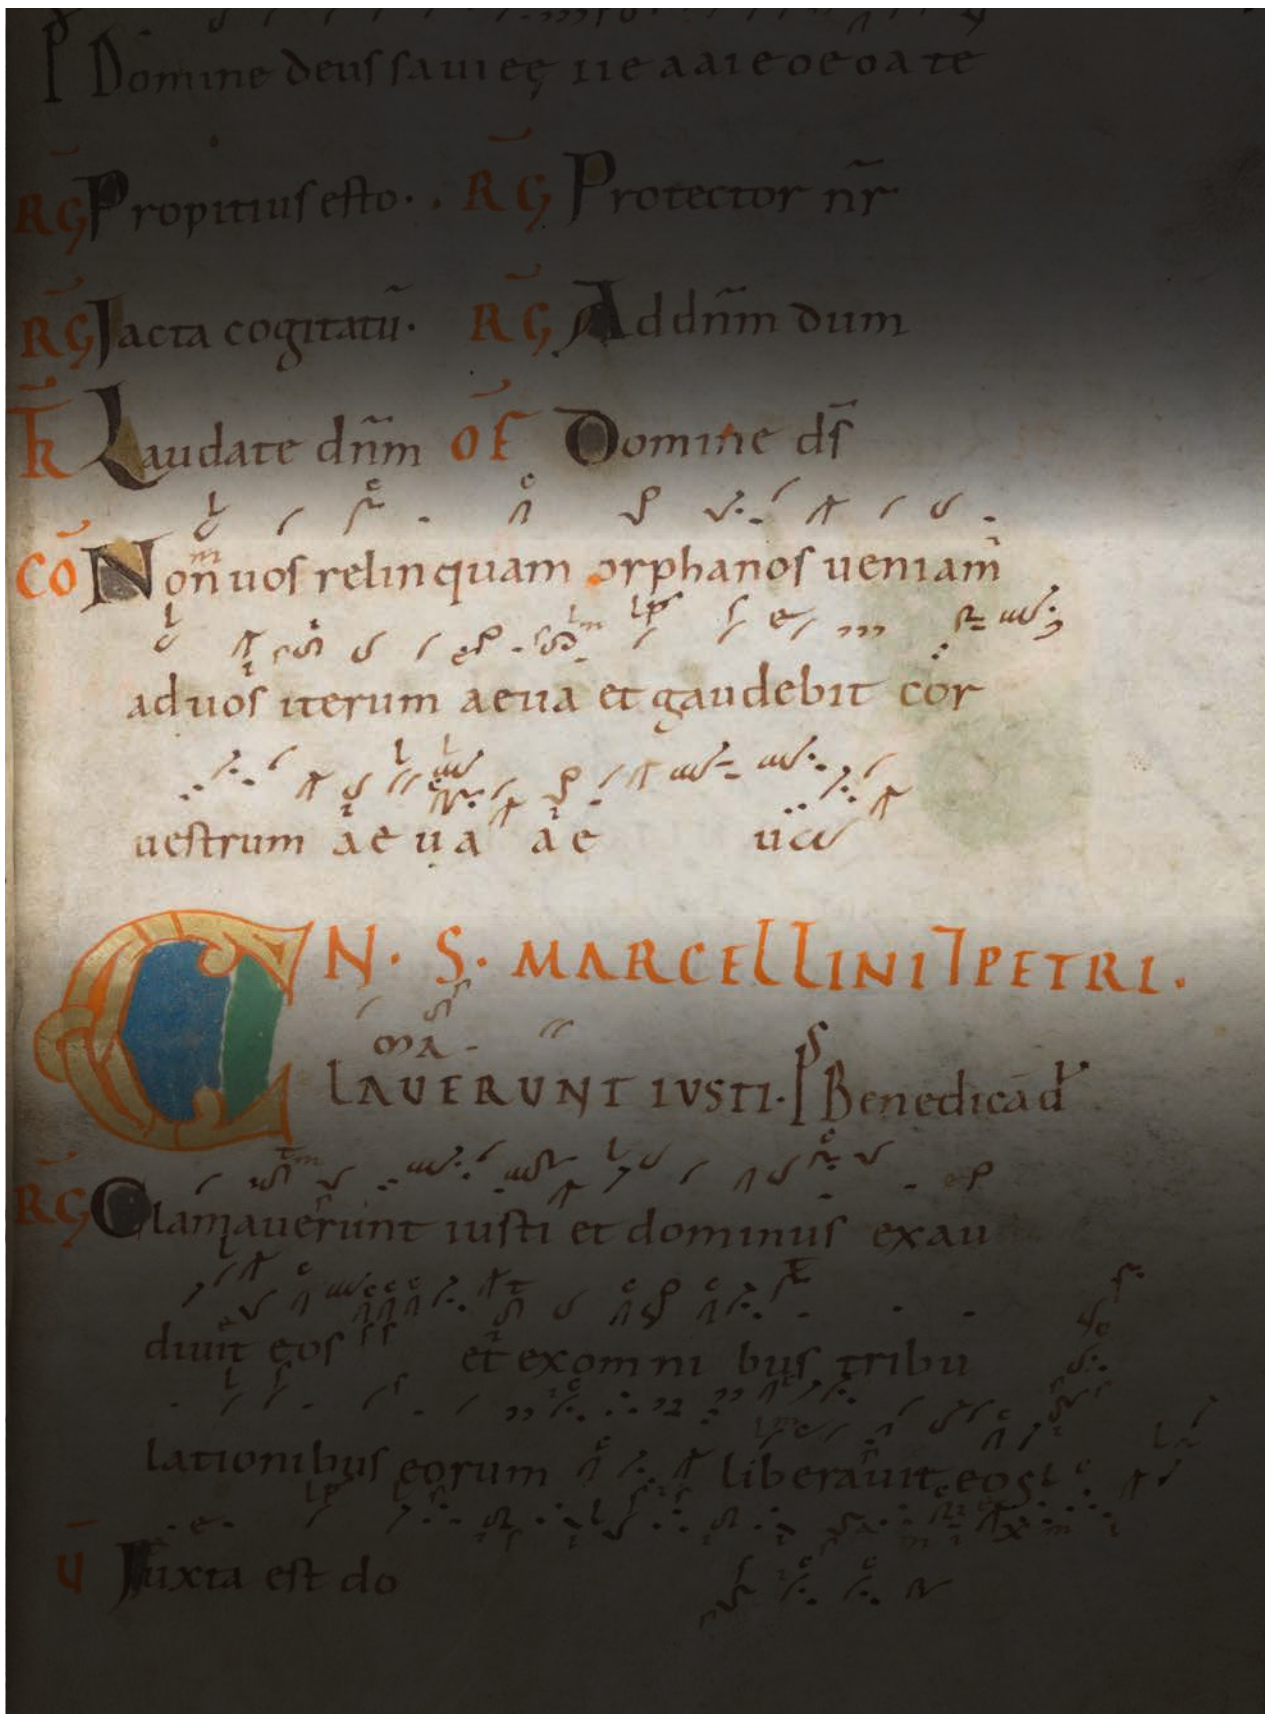 Domine deus sauieę iieaaieoeoate
RG Propitius esto. RG Protector nr̄
RG Iacta cogitatū. RG Ad dn̄m dum
Laudate dn̄m OF Domine ds̄
CŌ Non uos relinquam orphanos ueniam
ad uos iterum aeua et gaudebit cor
uestrum aeua ae ua
N. S. MARCELLINI ⁊ PETRI.
CLAVERUNT IVSTI. Ps Benedicā d
RG Clamauerunt iusti et dominus exau
diuit eos et ex omnibus tribu
lationibus eorum liberauit eos
Iuxta est do